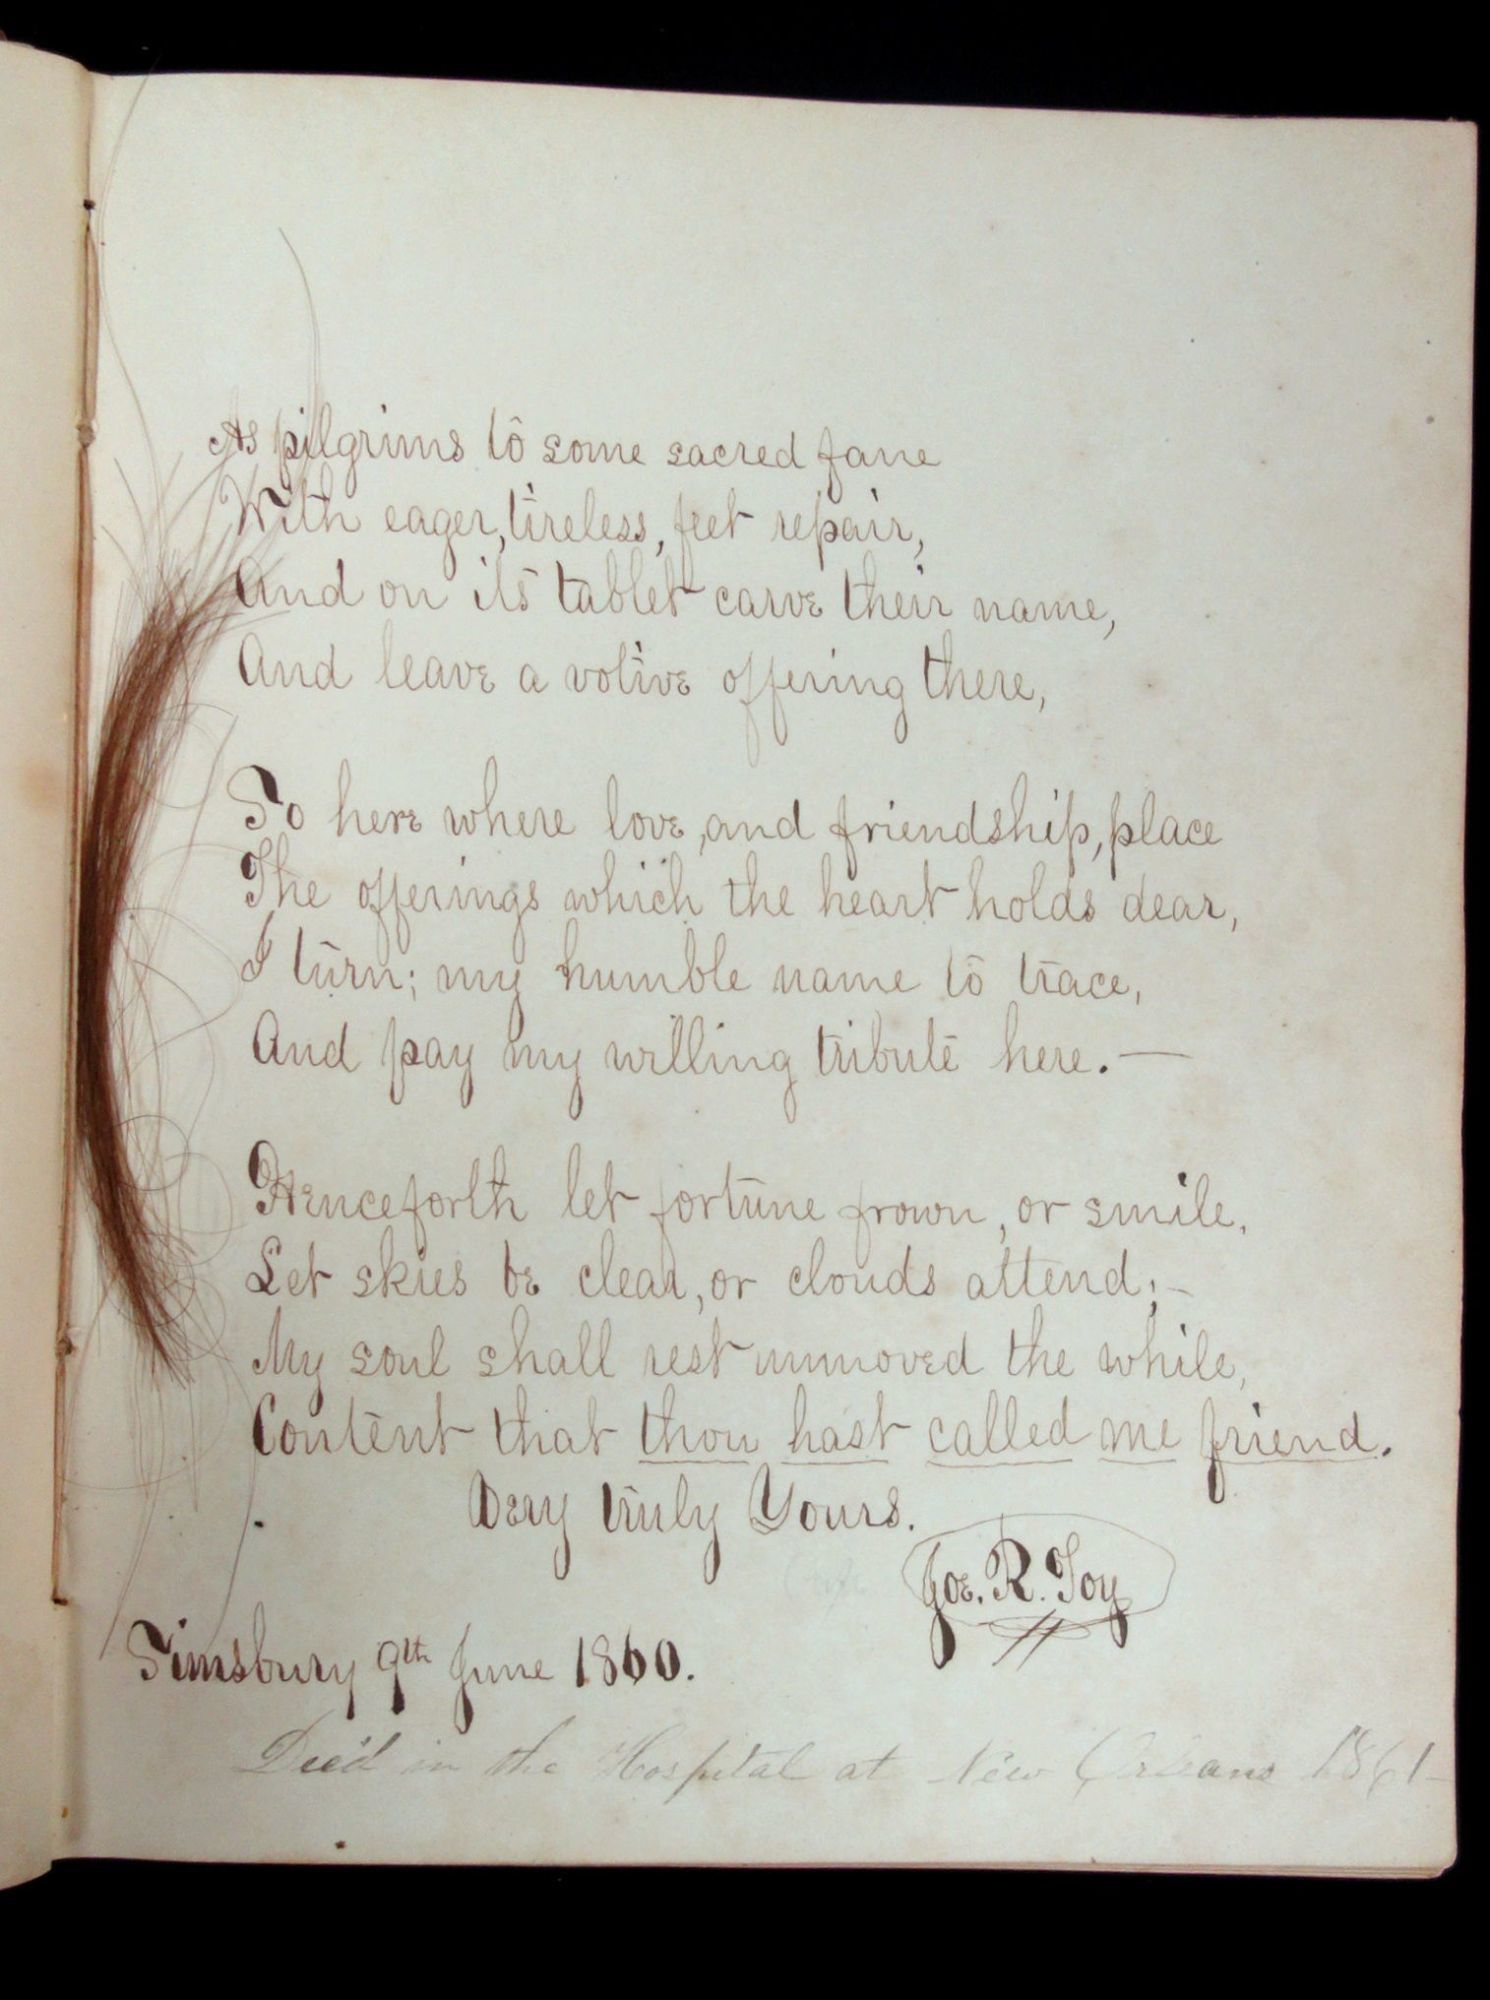 As pilgrims to some sacred fane
With eager, tireless, feet repair,
And on its tablet carve their name,
And leave a votive offering there,
So here where love, and friendship, place
The offerings which the heart holds dear,
I turn; my humble name to trace,
And pay my willing tribute here.—
Henceforth let fortune frown, or smile,
Let skies be clear, or clouds attend;—
My soul shall rest unmoved the while,
Content that thou hast called me friend.
Very truly Yours.
Joe. R. Toy
Simsbury 9th June 1860.
Died in the Hospital at New Orleans 1861–